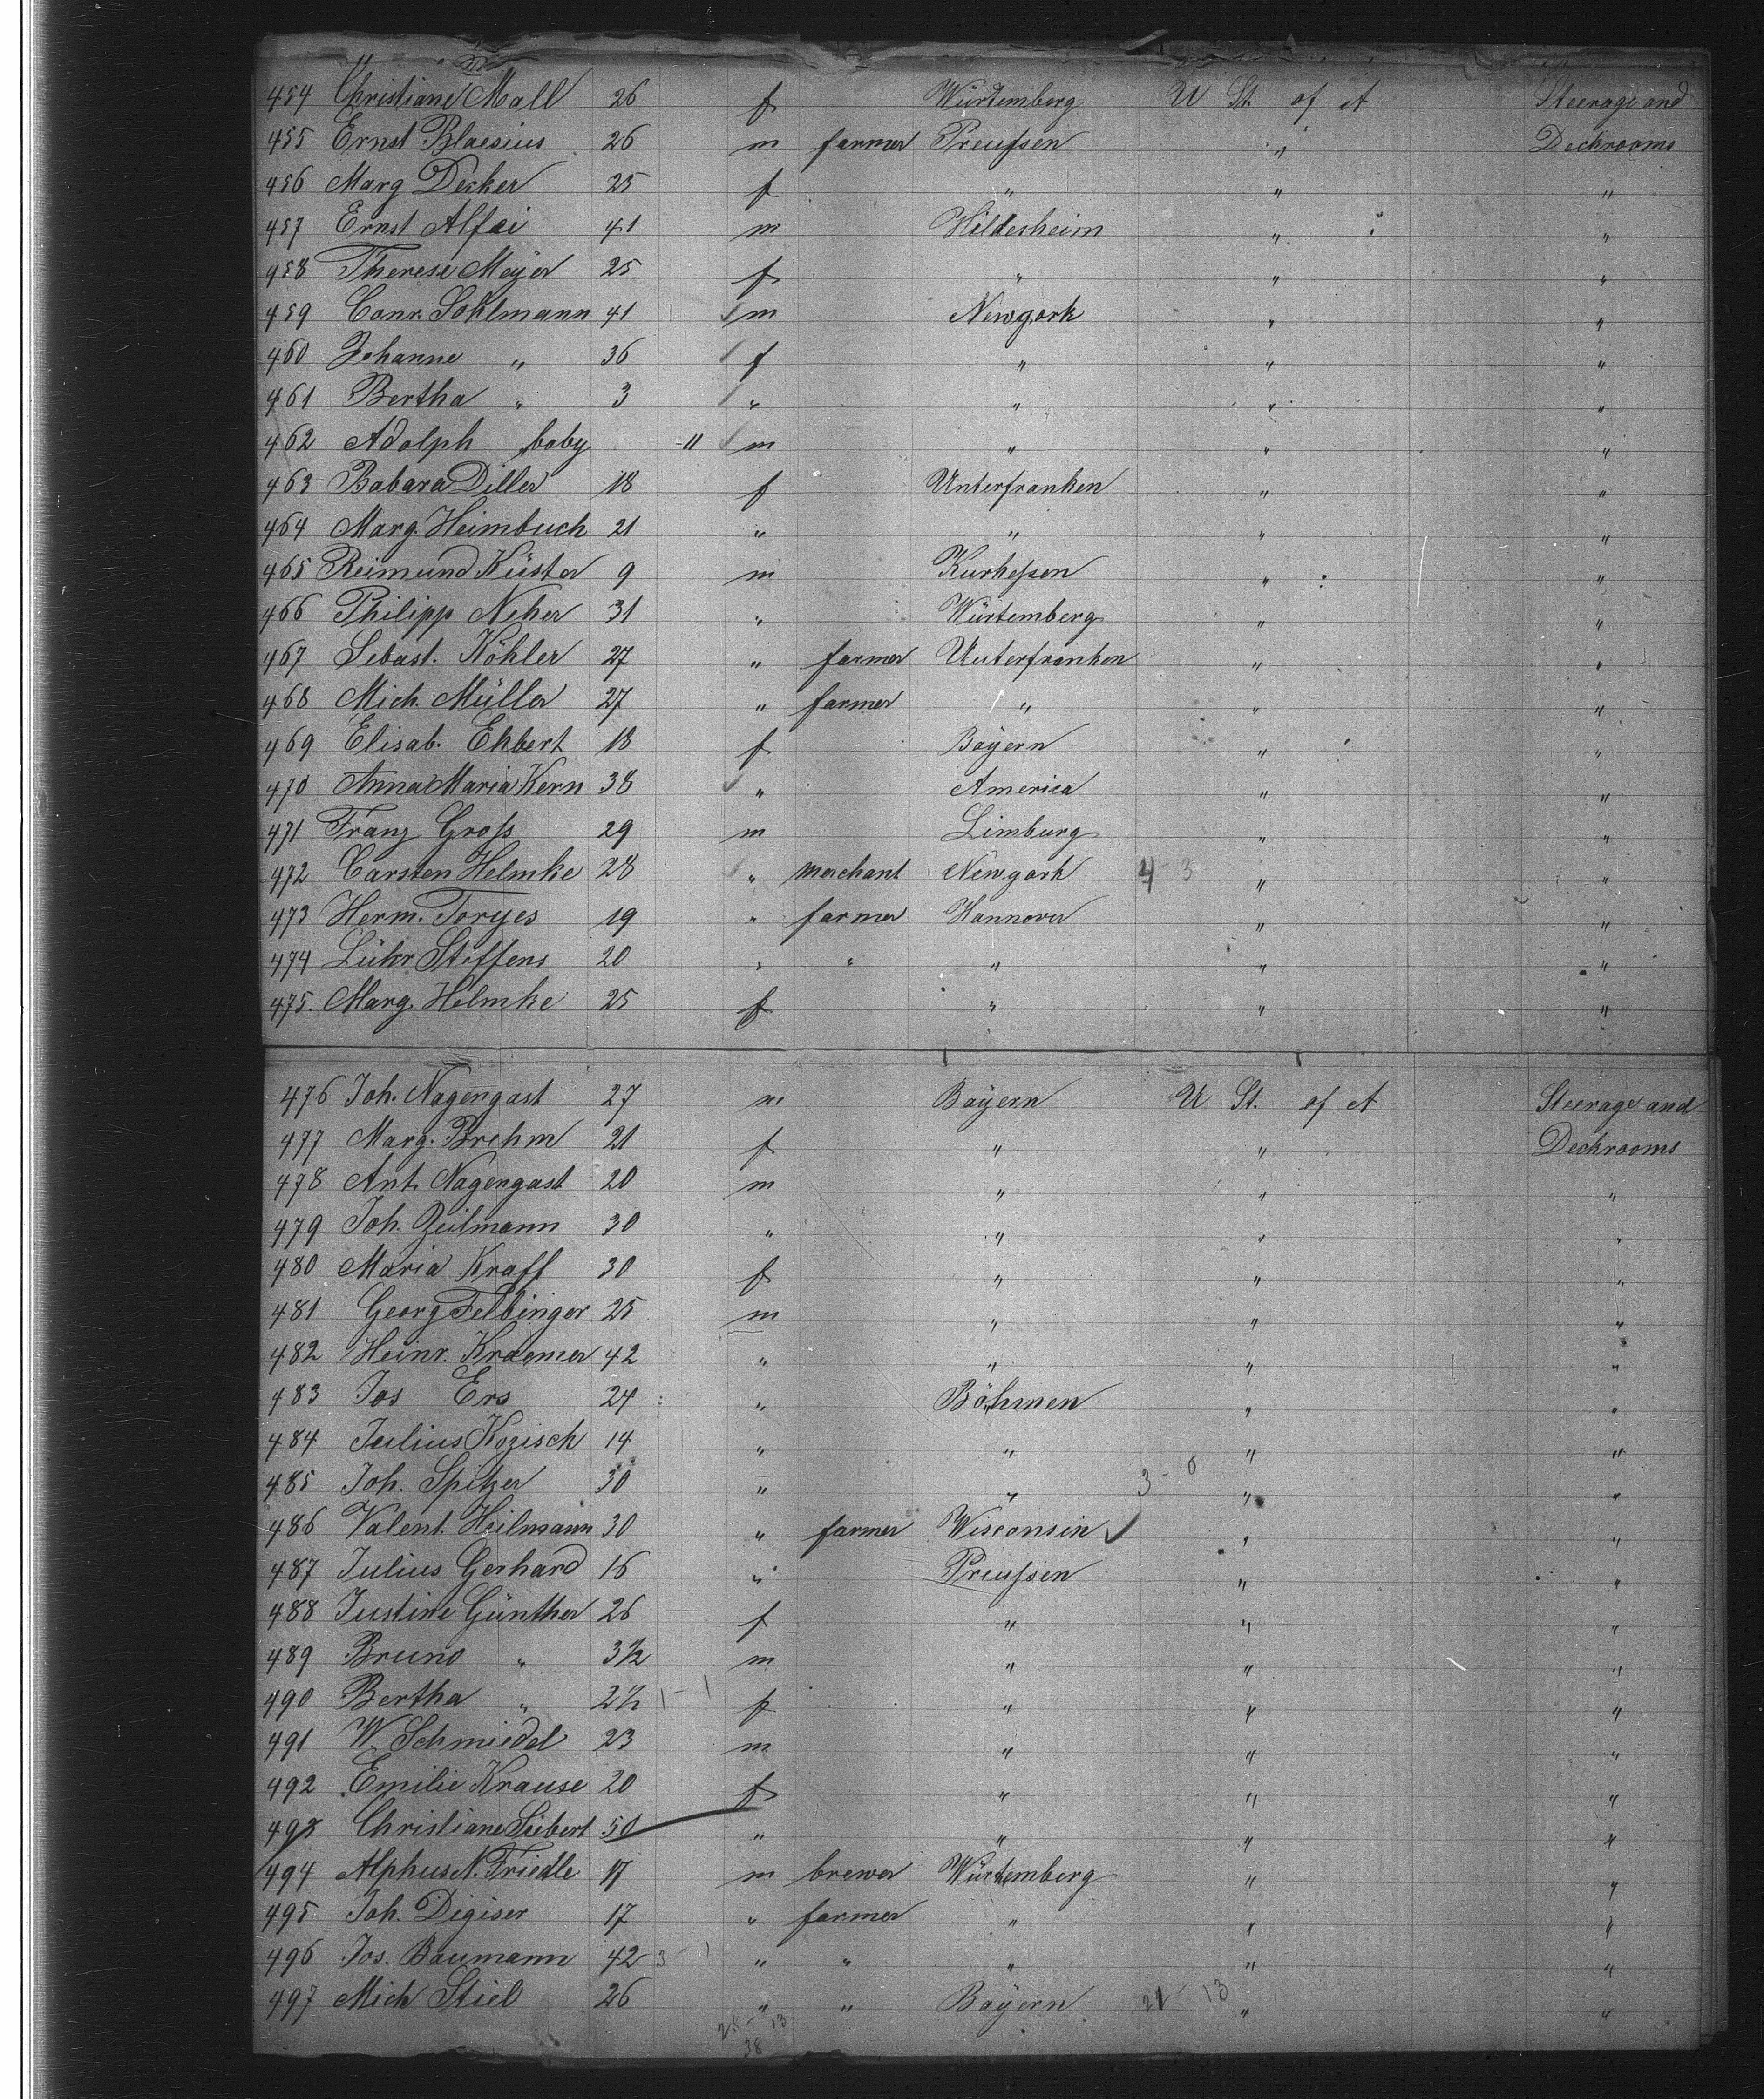 454 Christiane Mall 26 f Würtemberg U St. of A Steerage and
455 Ernst Blaesius 26 m farmer Preußen " Deckrooms
456 Marg Decker 25 f " " "
457 Ernst Alfei 41 m Hildesheim " "
458 Therese Meyer 25 f " " "
459 Conr. Sohlmann 41 m Newyork " "
460 Johanne " 36 f " " "
461 Bertha " 3 " " " "
462 Adolph baby 11 m " " "
463 Babara Diller 18 f Unterfranken " "
464 Marg. Heimbuch 21 " " " "
465 Reimund Küster 9 m Kurheßen " "
466 Philipp Neher 31 " Würtemberg " "
467 Sebast. Köhler 27 " farmer Unterfranken " "
468 Mich. Müller 27 " farmer " " "
469 Elisab. Ehbert 18 f Bayern " "
470 Anna Maria Kern 38 " America " "
471 Franz Groß 29 m Limburg " "
472 Carsten Helmke 28 " merchant Newyork 4 - 3 " "
473 Herm. Toryes 19 " farmer Hannover " "
474 Lühr Steffens 20 " " " " "
475. Marg. Helmke 25 f " " "
476 Joh. Nagengast 27 m Bayern U St. of A Steerage and
477 Marg. Brehm 21 f " " Deckrooms
478 Ant. Nagengast 20 m " " "
479 Joh. Zeilmann 30 " " " "
480 Maria Kraff 30 f " " "
481 Georg Felbinger 25 m " " "
482 Heinr. Kraemer 42 " " " "
483 Jos Ers 24 " Böhmen " "
484 Julius Kozisch 14 " " " "
485 Joh. Spitzer 30 " " 3 - 0 " "
486 Valent. Heilmann 30 " farmer Wisconsin " "
487 Julius Gerhard 16 " Preußen " "
488 Justine Günther 26 f " " "
489 Bruno " 3½ m " " "
490 Bertha " 2½ 1 - 1 f " " "
491 W. Schmiedel 23 m " " "
492 Emilie Krause 20 f " " "
493 Christiane Seibert 50 " " " "
494 Alphus N. Friedle 17 m brewer Würtemberg " "
495 Joh. Digiser 17 " farmer " " "
496 Jos. Baumann 42 3 - 1 " " " " "
497 Mich Stiel 26 " " Bayern 21 - 13 " "
25 - 13
38